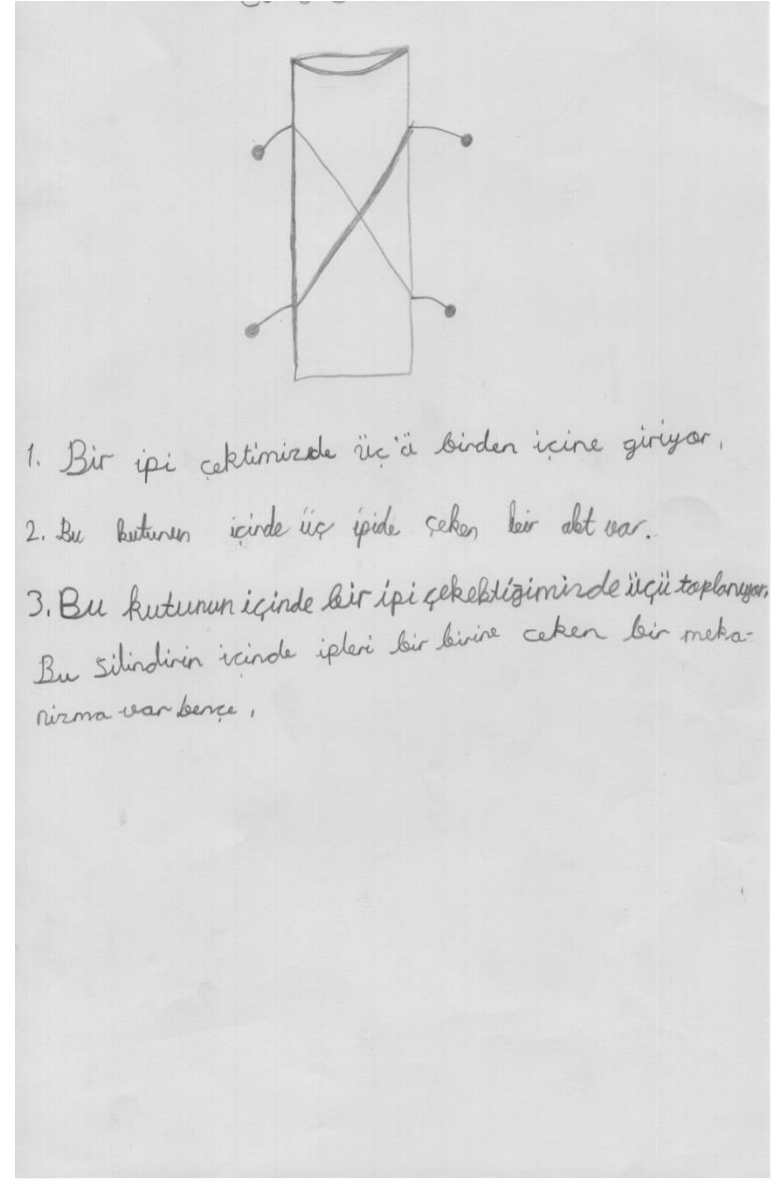 1. Bir ipi çektimizde üç'ü birden içine giriyor,
2. Bu kutunun içinde üç ipide çeken bir alet var.
3. Bu kutunun içinde bir ipi çekektiğimizde üçü toplanıyor.
Bu silindirin içinde ipleri bir birine ceken bir meka-
nizma var bence,